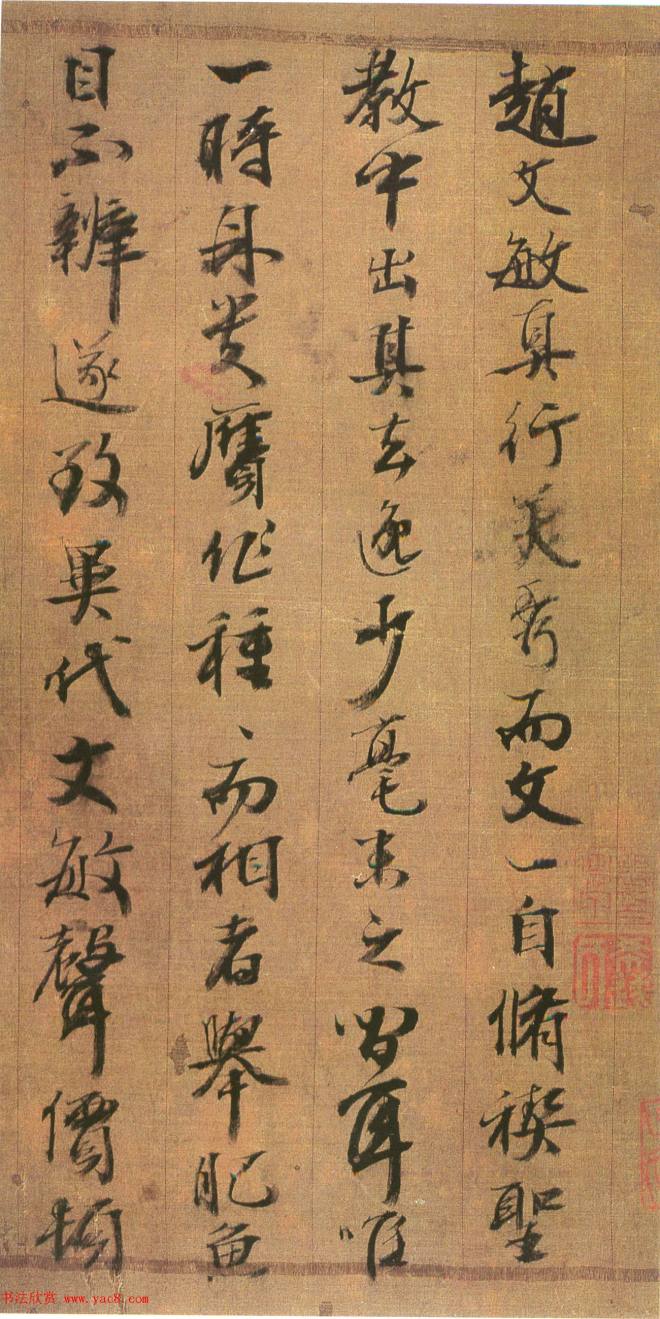 趙文敏真行美秀而文一自脩禊聖
教中出其去逸少毫末之間耳唯
一時身貴贋作種ヽ而相者舉肥魚
目不辨遂致異代文敏聲價頓
书法欣赏 www.yac8.com